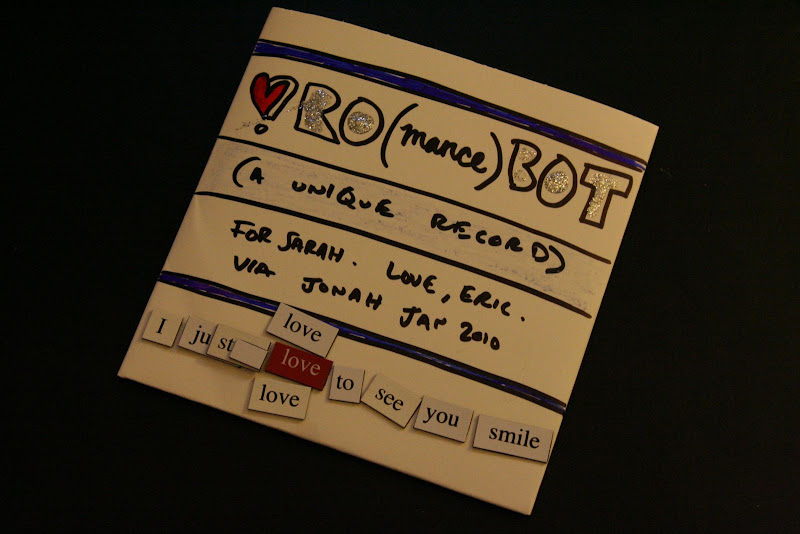 RO(mance)BOT
(A UNIQUE RECORD)
FOR SARAH. LOVE, ERIC.
VIA JONAH JAN 2010
love
I just love to see you smile
love